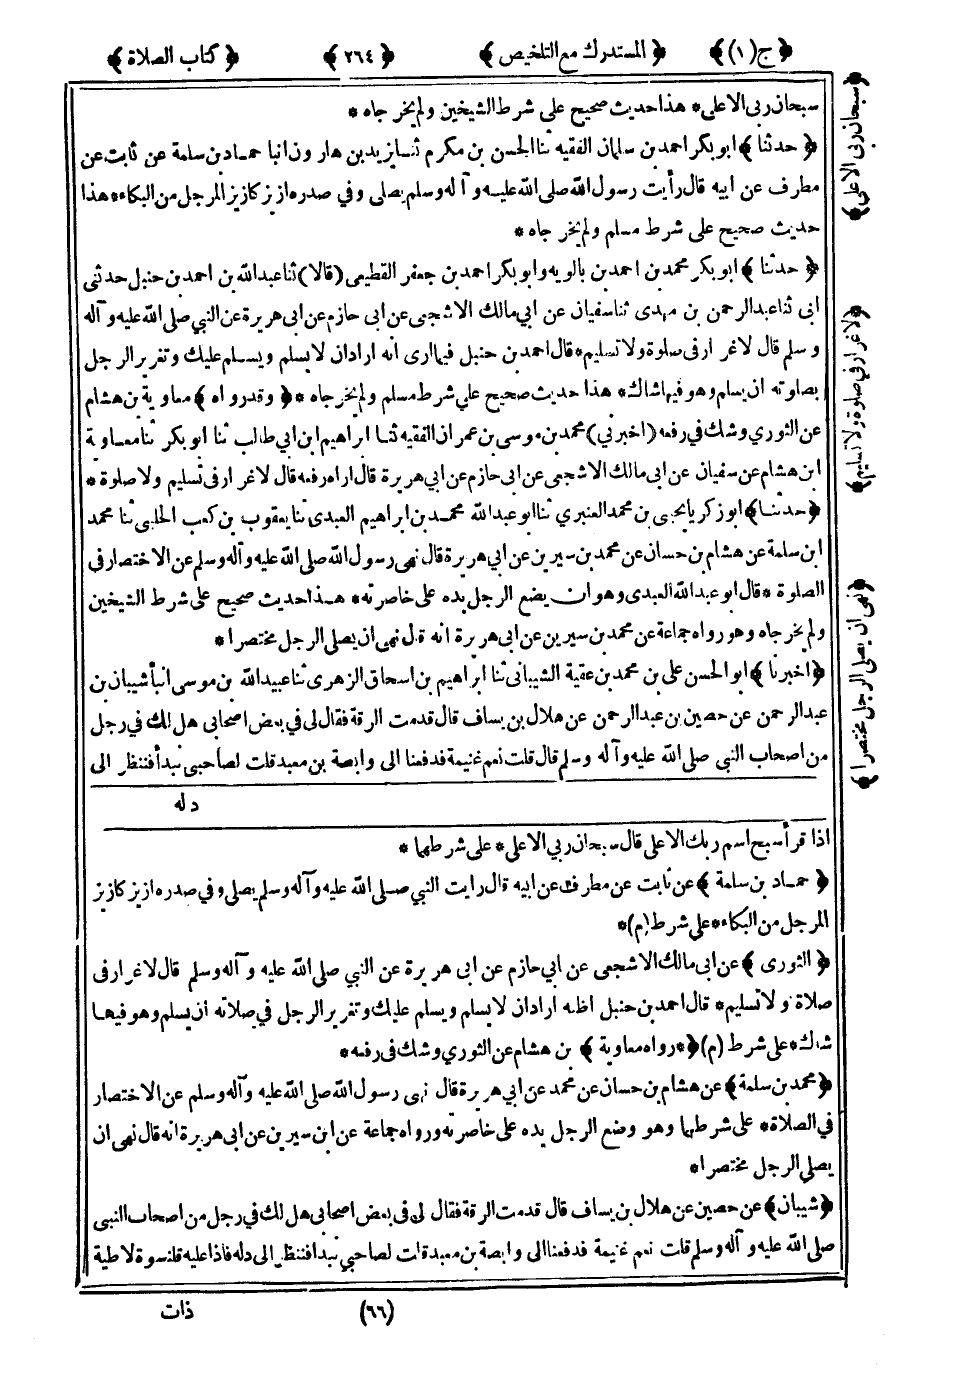 ﴿ ج (١) ﴾ ﴿ المستدرك مع التلخيص ﴾ ﴿ ٢٦٤ ﴾ ﴿ كتاب الصلاة ﴾
سبحان ربى الاعلى * هذا حديث صحيح على شرط الشيخين ولم يخرجاه *
﴿ حدثنا ﴾ ابو بكر احمد بن سلمان الفقيه ثنا الحسن بن مكرم ثنا يزيد بن هارون انبا حماد بن سلمة عن ثابت عن
مطرف عن ابيه قال رأيت رسول الله صلى الله عليه وآله وسلم يصلى وفي صدره ازيز كازيز المرجل من البكاء * هذا
حديث صحيح على شرط مسلم ولم يخرجاه *
﴿ حدثنا ﴾ ابو بكر محمد بن احمد بن بالويه وابو بكر احمد بن جعفر القطيعى (قالا) ثنا عبد الله بن احمد بن حنبل حدثنى
ابى ثنا عبد الرحمن بن مهدى ثنا سفيان عن ابي مالك الاشجعى عن ابى حازم عن ابى هريرة عن النبي صلى الله عليه وآله
وسلم قال لا غرار فى صلوة ولا تسليم * قال احمد بن حنبل فيما ارى انه اراد ان لا يسلم ويسلم عليك وتغرير الرجل
بصلوته ان يسلم وهو فيها شاك * هذا حديث صحيح على شرط مسلم ولم يخرجاه * ﴿ وقد رواه ﴾ معاوية بن هشام
عن الثوري وشك في رفعه (اخبرني) محمد بن موسى بن عمران الفقيه ثنا ابراهيم ابن ابي طالب ثنا ابو بكر ثنا معاوية
ابن هشام عن سفيان عن ابى مالك الاشجعى عن ابى حازم عن ابي هريرة قال اراه رفعه قال لا غرار فى تسليم ولا صلوة *
﴿ حدثنا ﴾ ابو زكريا يحيى بن محمد العنبري ثنا ابو عبد الله محمد بن ابراهيم العبدى ثنا يعقوب بن كعب الحلبى ثنا محمد
ابن سلمة عن هشام بن حسان عن محمد بن سيرين عن ابي هريرة قال نهى رسول الله صلى الله عليه وآله وسلم عن الاختصار فى
الصلوة * قال ابو عبد الله العبدى وهو ان يضع الرجل يده على خاصرته * هذا حديث صحيح على شرط الشيخين
ولم يخرجاه وهو رواه جماعة عن محمد بن سيرين عن ابى هريرة انه قال نهى ان يصلى الرجل مختصرا *
﴿ اخبرنا ﴾ ابو الحسن على بن محمد بن عقبة الشيبانى ثنا ابراهيم بن اسحاق الزهرى ثنا عبيد الله بن موسى انبأ شيبان بن
عبد الرحمن عن حصين بن عبد الرحمن عن هلال بن يساف قال قدمت الرقة فقال لى في بعض اصحابى هل لك في رجل
من اصحاب النبي صلى الله عليه وآله وسلم قال قلت نعم غنيمة فدفعنا الى وابصة بن معبد قلت لصاحبي نبدأ فننظر الى
دله
اذا قرأ سبح اسم ربك الاعلى قال سبحان ربي الاعلى * على شرطهما *
﴿ حماد بن سلمة ﴾ عن ثابت عن مطرف عن ابيه قال رايت النبي صلى الله عليه وآله وسلم يصلى وفي صدره ازيز كازيز
المرجل من البكاء * على شرط (م) *
﴿ الثورى ﴾ عن ابى مالك الاشجعى عن ابي حازم عن ابى هريرة عن النبي صلى الله عليه وآله وسلم قال لا غرار فى
صلاة ولا تسليم * قال احمد بن حنبل اظنه اراد ان لا يسلم ويسلم عليك وتغرير الرجل في صلاته ان يسلم وهو فيها
شاك * على شرط (م) ﴿ * رواه معاوية ﴾ بن هشام عن الثوري وشك فى رفعه *
﴿ محمد بن سلمة ﴾ عن هشام بن حسان عن محمد عن ابي هريرة قال نهى رسول الله صلى الله عليه وآله وسلم عن الاختصار
في الصلاة * على شرطهما وهو وضع الرجل يده على خاصرته ورواه جماعة عن ابن سيرين عن ابى هريرة انه قال نهى ان
يصلى الرجل مختصرا *
﴿ شيبان ﴾ عن حصين عن هلال بن يساف قال قدمت الرقة فقال لى فى بعض اصحابى هل لك في رجل من اصحاب النبى
صلى الله عليه وآله وسلم قلت نعم غنيمة فدفعنا الى وابصة بن معبد قلت لصاحبي نبدأ فننظر الى دله فاذا عليه قلنسوة لاطية
(٦٦) ذات
﴿ سبحان ربى الاعلى ﴾
﴿ لا غرار في صلوة ولا تسليم ﴾
﴿ نهى ان يصلى الرجل مختصرا ﴾